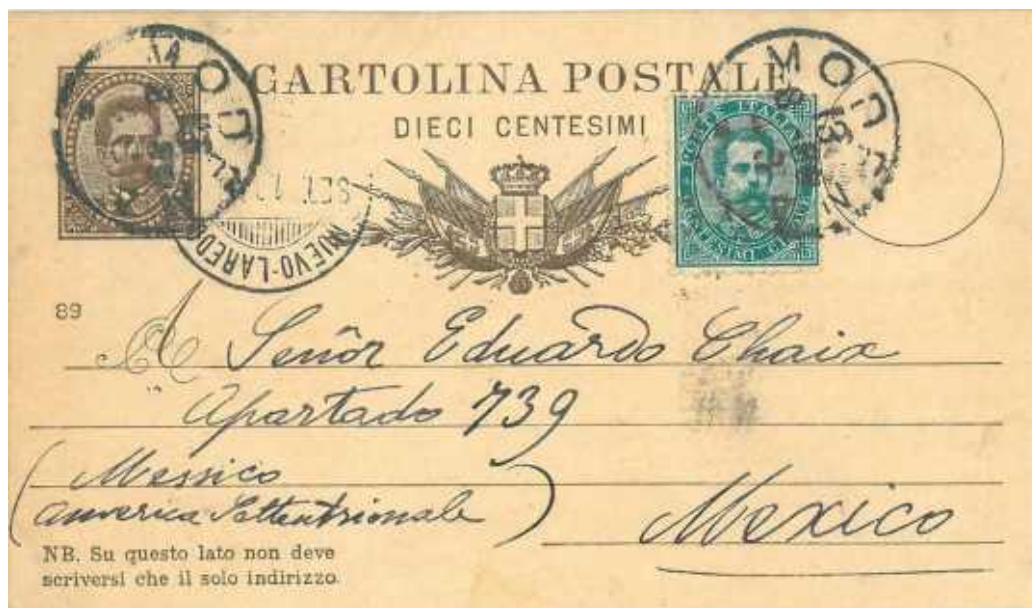 CARTOLINA POSTALE
DIECI CENTESIMI
POSTE ITALIANE
MOD
MOD
NUEVO-LAREDO
89
A Señor Eduardo Chaix
Apartado 739
(Messico
America Settentrionale)
Mexico
NB. Su questo lato non deve
scriversi che il solo indirizzo.